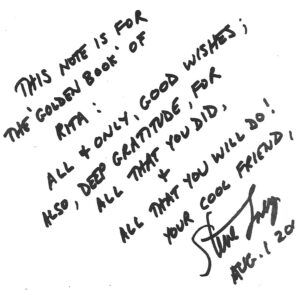 THIS NOTE IS FOR
THE 'GOLDEN BOOK' OF
RITA:
ALL & ONLY, GOOD WISHES;
ALSO, DEEP GRATITUDE, FOR
ALL THAT YOU DID,
&
ALL THAT YOU WILL DO!
YOUR COOL FRIEND,
Steve
AUG. 1 20